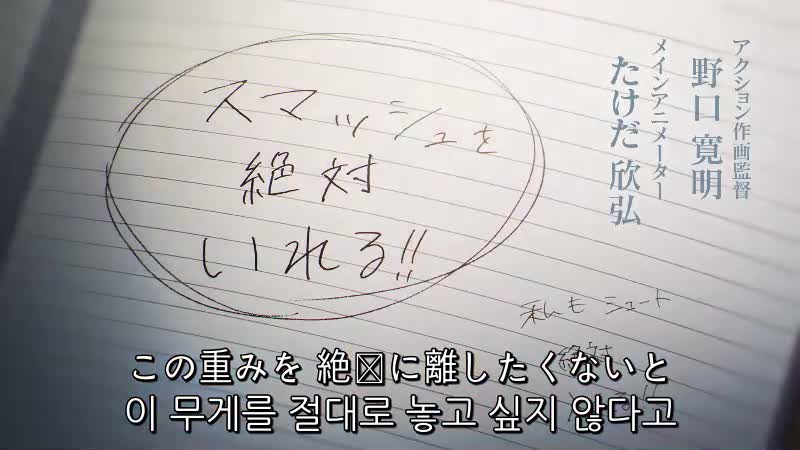 アクション作画監督
野口 寛明
メインアニメーター
たけだ 欣弘
スマッシュを
絶対
いれる!!
私も シュート
絶対
この重みを 絶☒に離したくないと
이 무게를 절대로 놓고 싶지 않다고